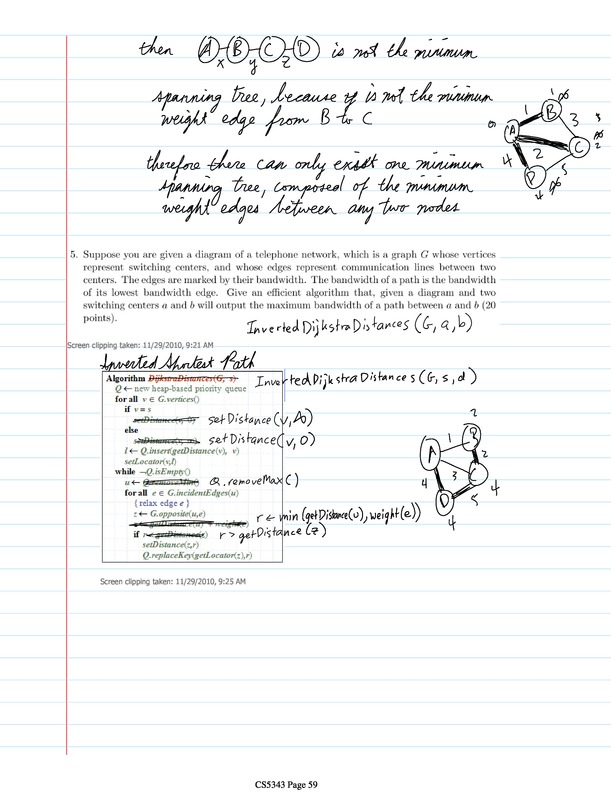 then A B C D is not the minimum
x y z
spanning tree, because y is not the minimum
weight edge from B to C
therefore there can only exist one minimum
spanning tree, composed of the minimum
weight edges between any two nodes
1 ∞
B
1
3
A
C
2
4
2
5
D
5. Suppose you are given a diagram of a telephone network, which is a graph G whose vertices
represent switching centers, and whose edges represent communication lines between two
centers. The edges are marked by their bandwidth. The bandwidth of a path is the bandwidth
of its lowest bandwidth edge. Give an efficient algorithm that, given a diagram and two
switching centers a and b will output the maximum bandwidth of a path between a and b (20
points).
InvertedDijkstraDistances(G,a,b)
Screen clipping taken: 11/29/2010, 9:21 AM
Inverted Shortest Path
Algorithm DijkstraDistances(G, s) InvertedDijkstraDistances(G,s,d)
Q ← new heap-based priority queue
for all v ∈ G.vertices()
if v = s
setDistance(v, 0) setDistance(v,∞)
else
setDistance(v, ∞) setDistance(v,0)
l ← Q.insert(getDistance(v), v)
setLocator(v,l)
while ¬Q.isEmpty()
u ← Q.removeMin() Q.removeMax()
for all e ∈ G.incidentEdges(u)
{ relax edge e }
z ← G.opposite(u,e)
r ← getDistance(u) + weight(e) r ← min(getDistance(u), weight(e))
if r < getDistance(z) r > getDistance(z)
setDistance(z,r)
Q.replaceKey(getLocator(z),r)
2
B
1
A
2
C
3
4
4
D
5
4
Screen clipping taken: 11/29/2010, 9:25 AM
CS5343 Page 59